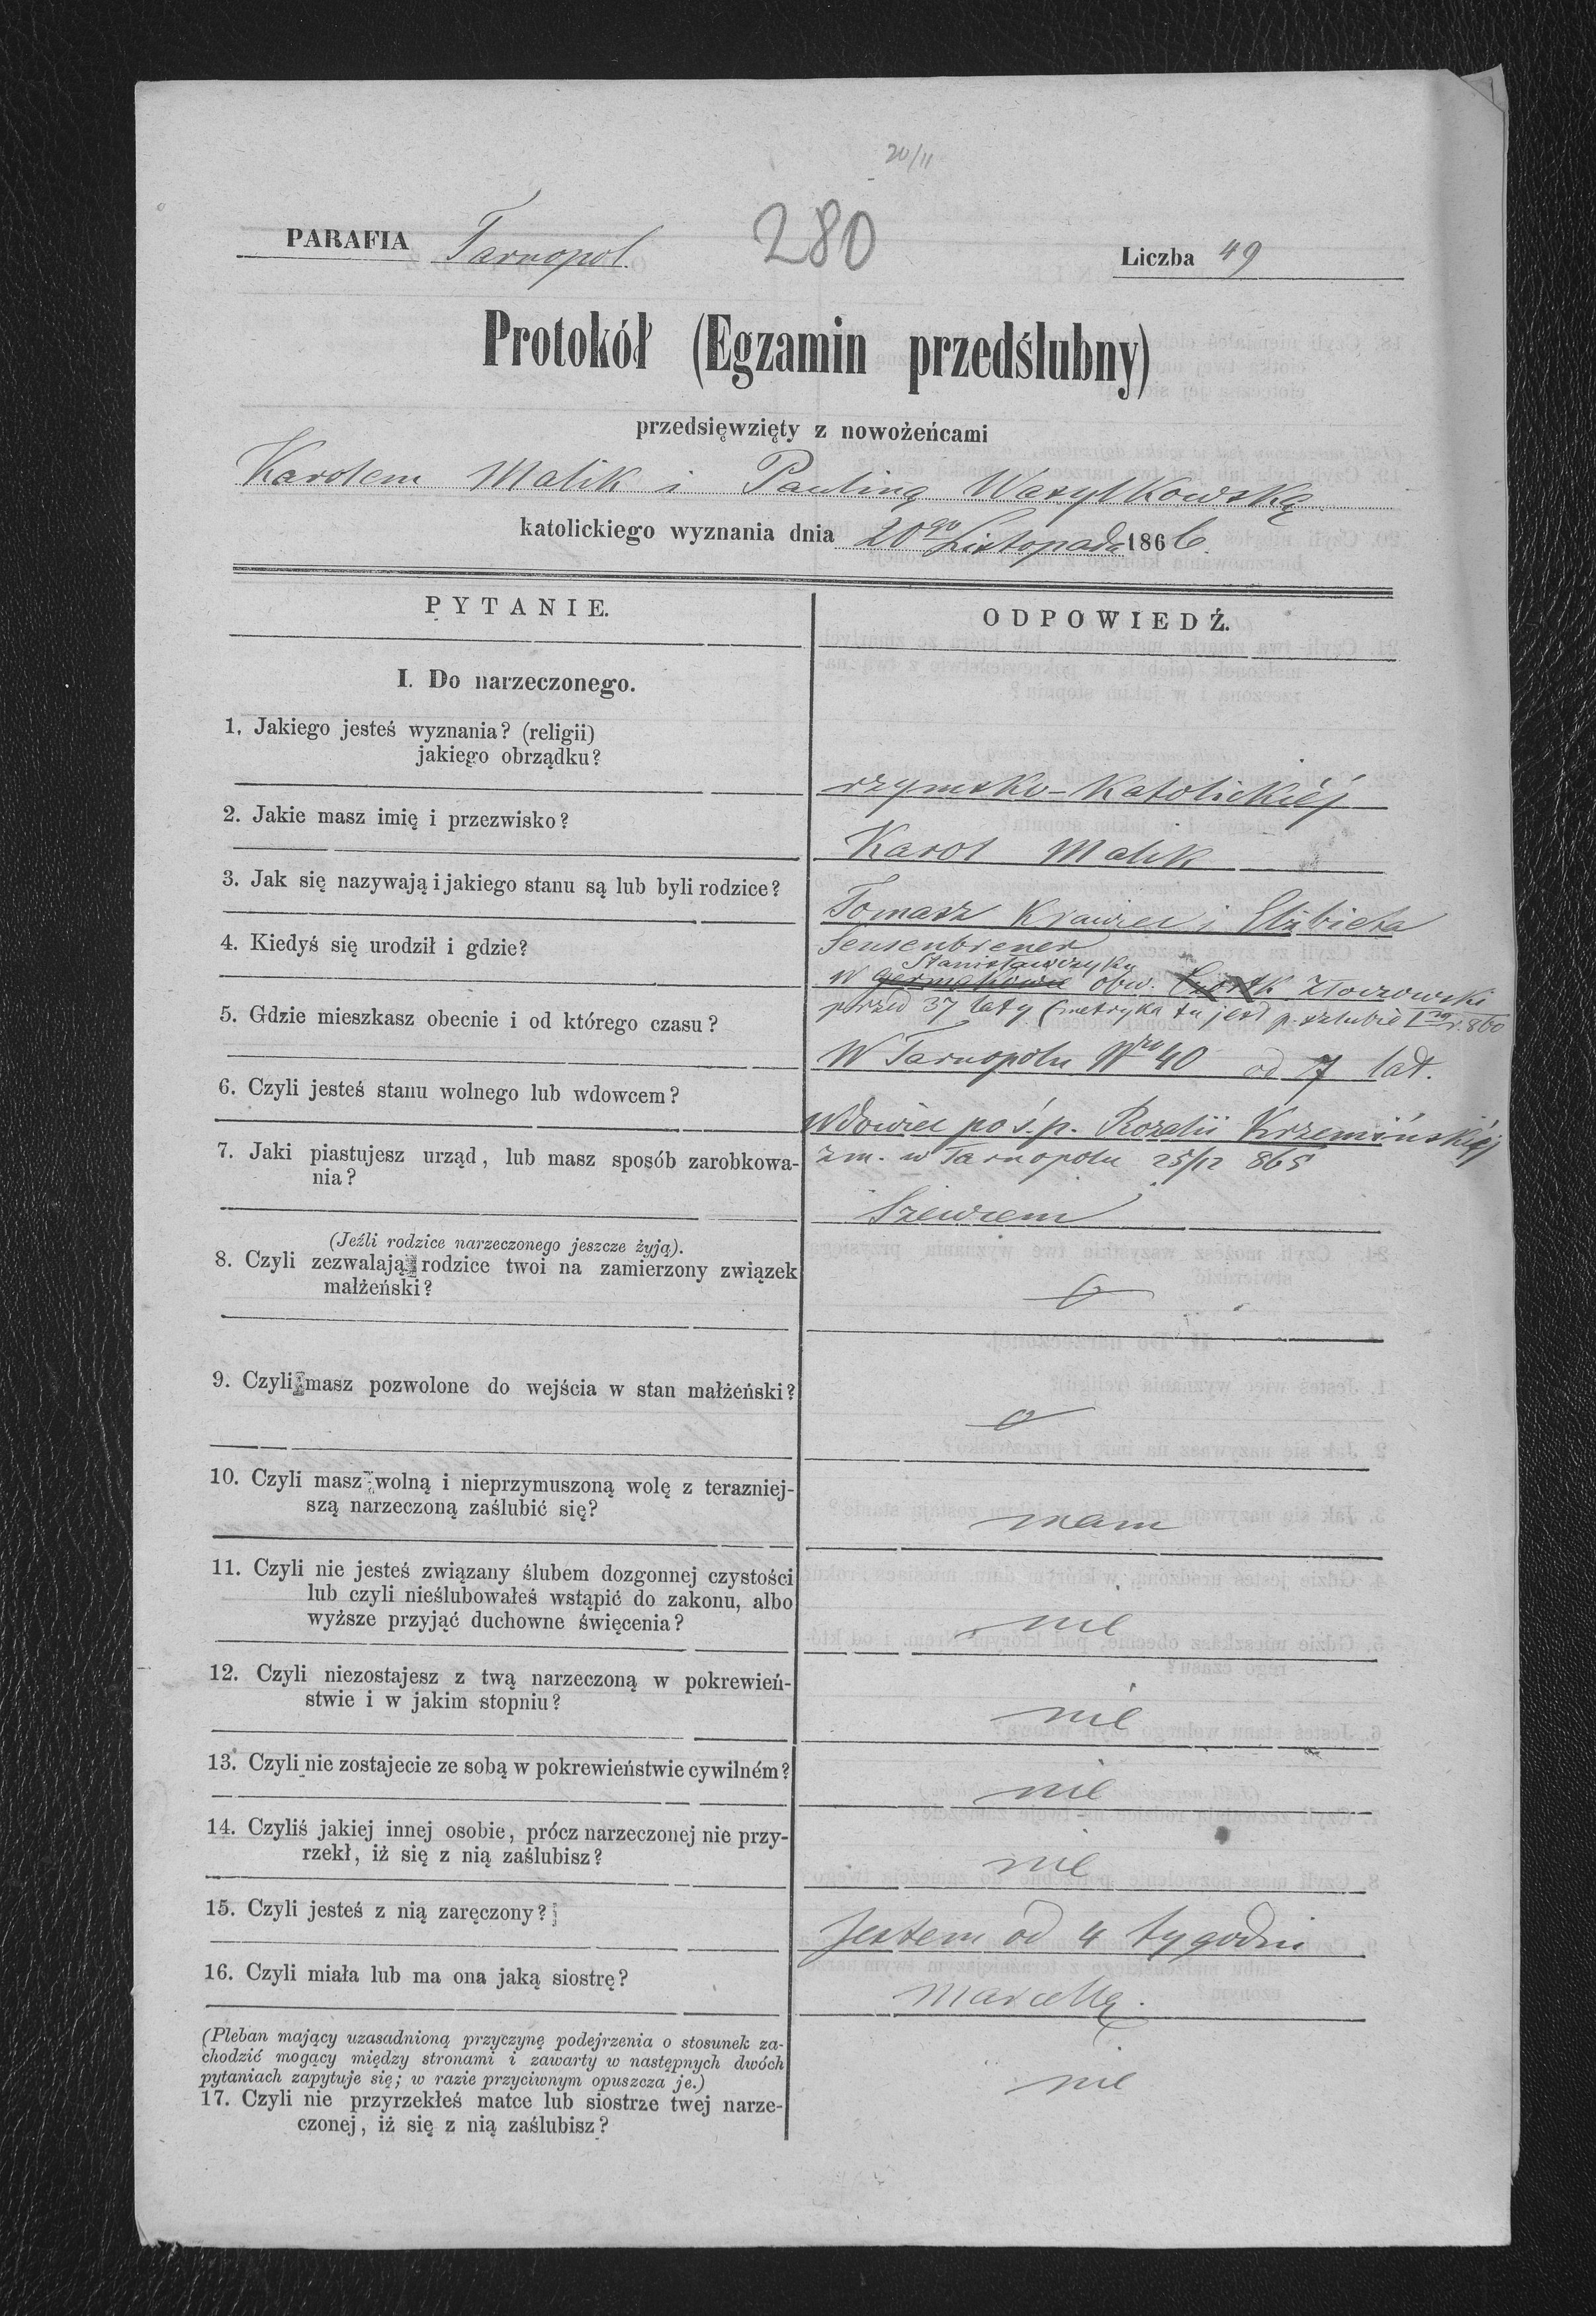 20/11
PARAFIA Tarnopol 280 Liczba 49
Protokół (Egzamin przedślubny)
przedsięwzięty z nowożeńcami
Karolem Malik i Pauliną Wasylkowską
katolickiego wyznania dnia 20go Listopada 1866.
PYTANIE. ODPOWIEDŹ.
I. Do narzeczonego.
1. Jakiego jesteś wyznania? (religii)
jakiego obrządku?
rzymsko-katolickiéj
2. Jakie masz imię i przezwisko?
Karol Malik
3. Jak się nazywają i jakiego stanu są lub byli rodzice?
Tomasz Krawiec i Elżbieta
Sensenbrener
4. Kiedyś się urodził i gdzie?
Stanisławczyku
w obw. Złoczowski
przed 37 laty (metryka tu jest p. szlubie 1 r. 860
5. Gdzie mieszkasz obecnie i od którego czasu?
W Tarnopolu Nro 40 od 7 lat.
6. Czyli jesteś stanu wolnego lub wdowcem?
Wdowiec po ś.p. Rozalii Krzemińskiéj
zm. w Tarnopolu 25/12 865
7. Jaki piastujesz urząd, lub masz sposób zarobkowa-
nia?
Szewcem
(Jeźli rodzice narzeczonego jeszcze żyją).
8. Czyli zezwalają rodzice twoi na zamierzony związek
małżeński?
9. Czyli masz pozwolone do wejścia w stan małżeński?
10. Czyli masz wolną i nieprzymuszoną wolę z terazniej-
szą narzeczoną zaślubić się?
mam
11. Czyli nie jesteś związany ślubem dozgonnej czystości
lub czyli nieślubowałeś wstąpić do zakonu, albo
wyższe przyjąć duchowne święcenia?
nie
12. Czyli niezostajesz z twą narzeczoną w pokrewień-
stwie i w jakim stopniu?
nie
13. Czyli nie zostajecie ze sobą w pokrewieństwie cywilném?
nie
14. Czyliś jakiej innej osobie, prócz narzeczonej nie przy-
rzekł, iż się z nią zaślubisz?
nie
15. Czyli jesteś z nią zaręczony?
Jestem od 4 tygodni
16. Czyli miała lub ma ona jaką siostrę?
Marcellę.
(Pleban mający uzasadnioną przyczynę podejrzenia o stosunek za-
chodzić mogący między stronami i zawarty w następnych dwóch
pytaniach zapytuje się; w razie przyciwnym opuszcza je.)
17. Czyli nie przyrzekłeś matce lub siostrze twej narze-
czonej, iż się z nią zaślubisz?
nie